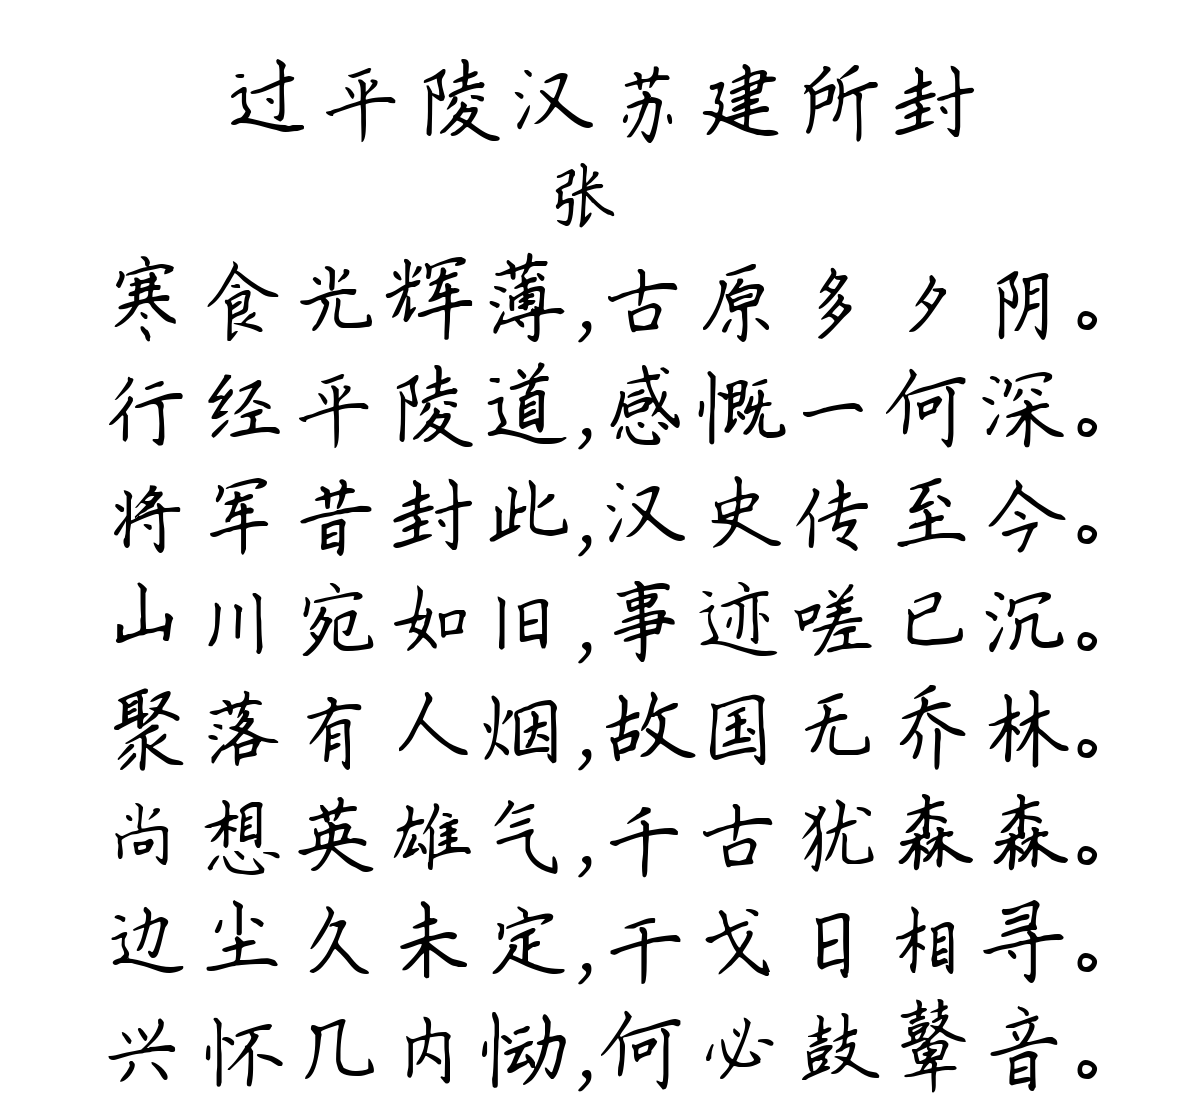 过平陵汉苏建所封
张
寒食光辉薄,古原多夕阴。
行经平陵道,感慨一何深。
将军昔封此,汉史传至今。
山川宛如旧,事迹嗟已沉。
聚落有人烟,故国无乔林。
尚想英雄气,千古犹森森。
边尘久未定,干戈日相寻。
兴怀几内恸,何必鼓鼙音。